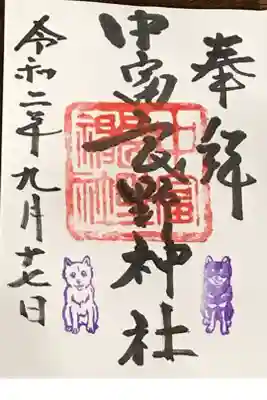 奉拝
中富熊野神社
令和二年九月十七日